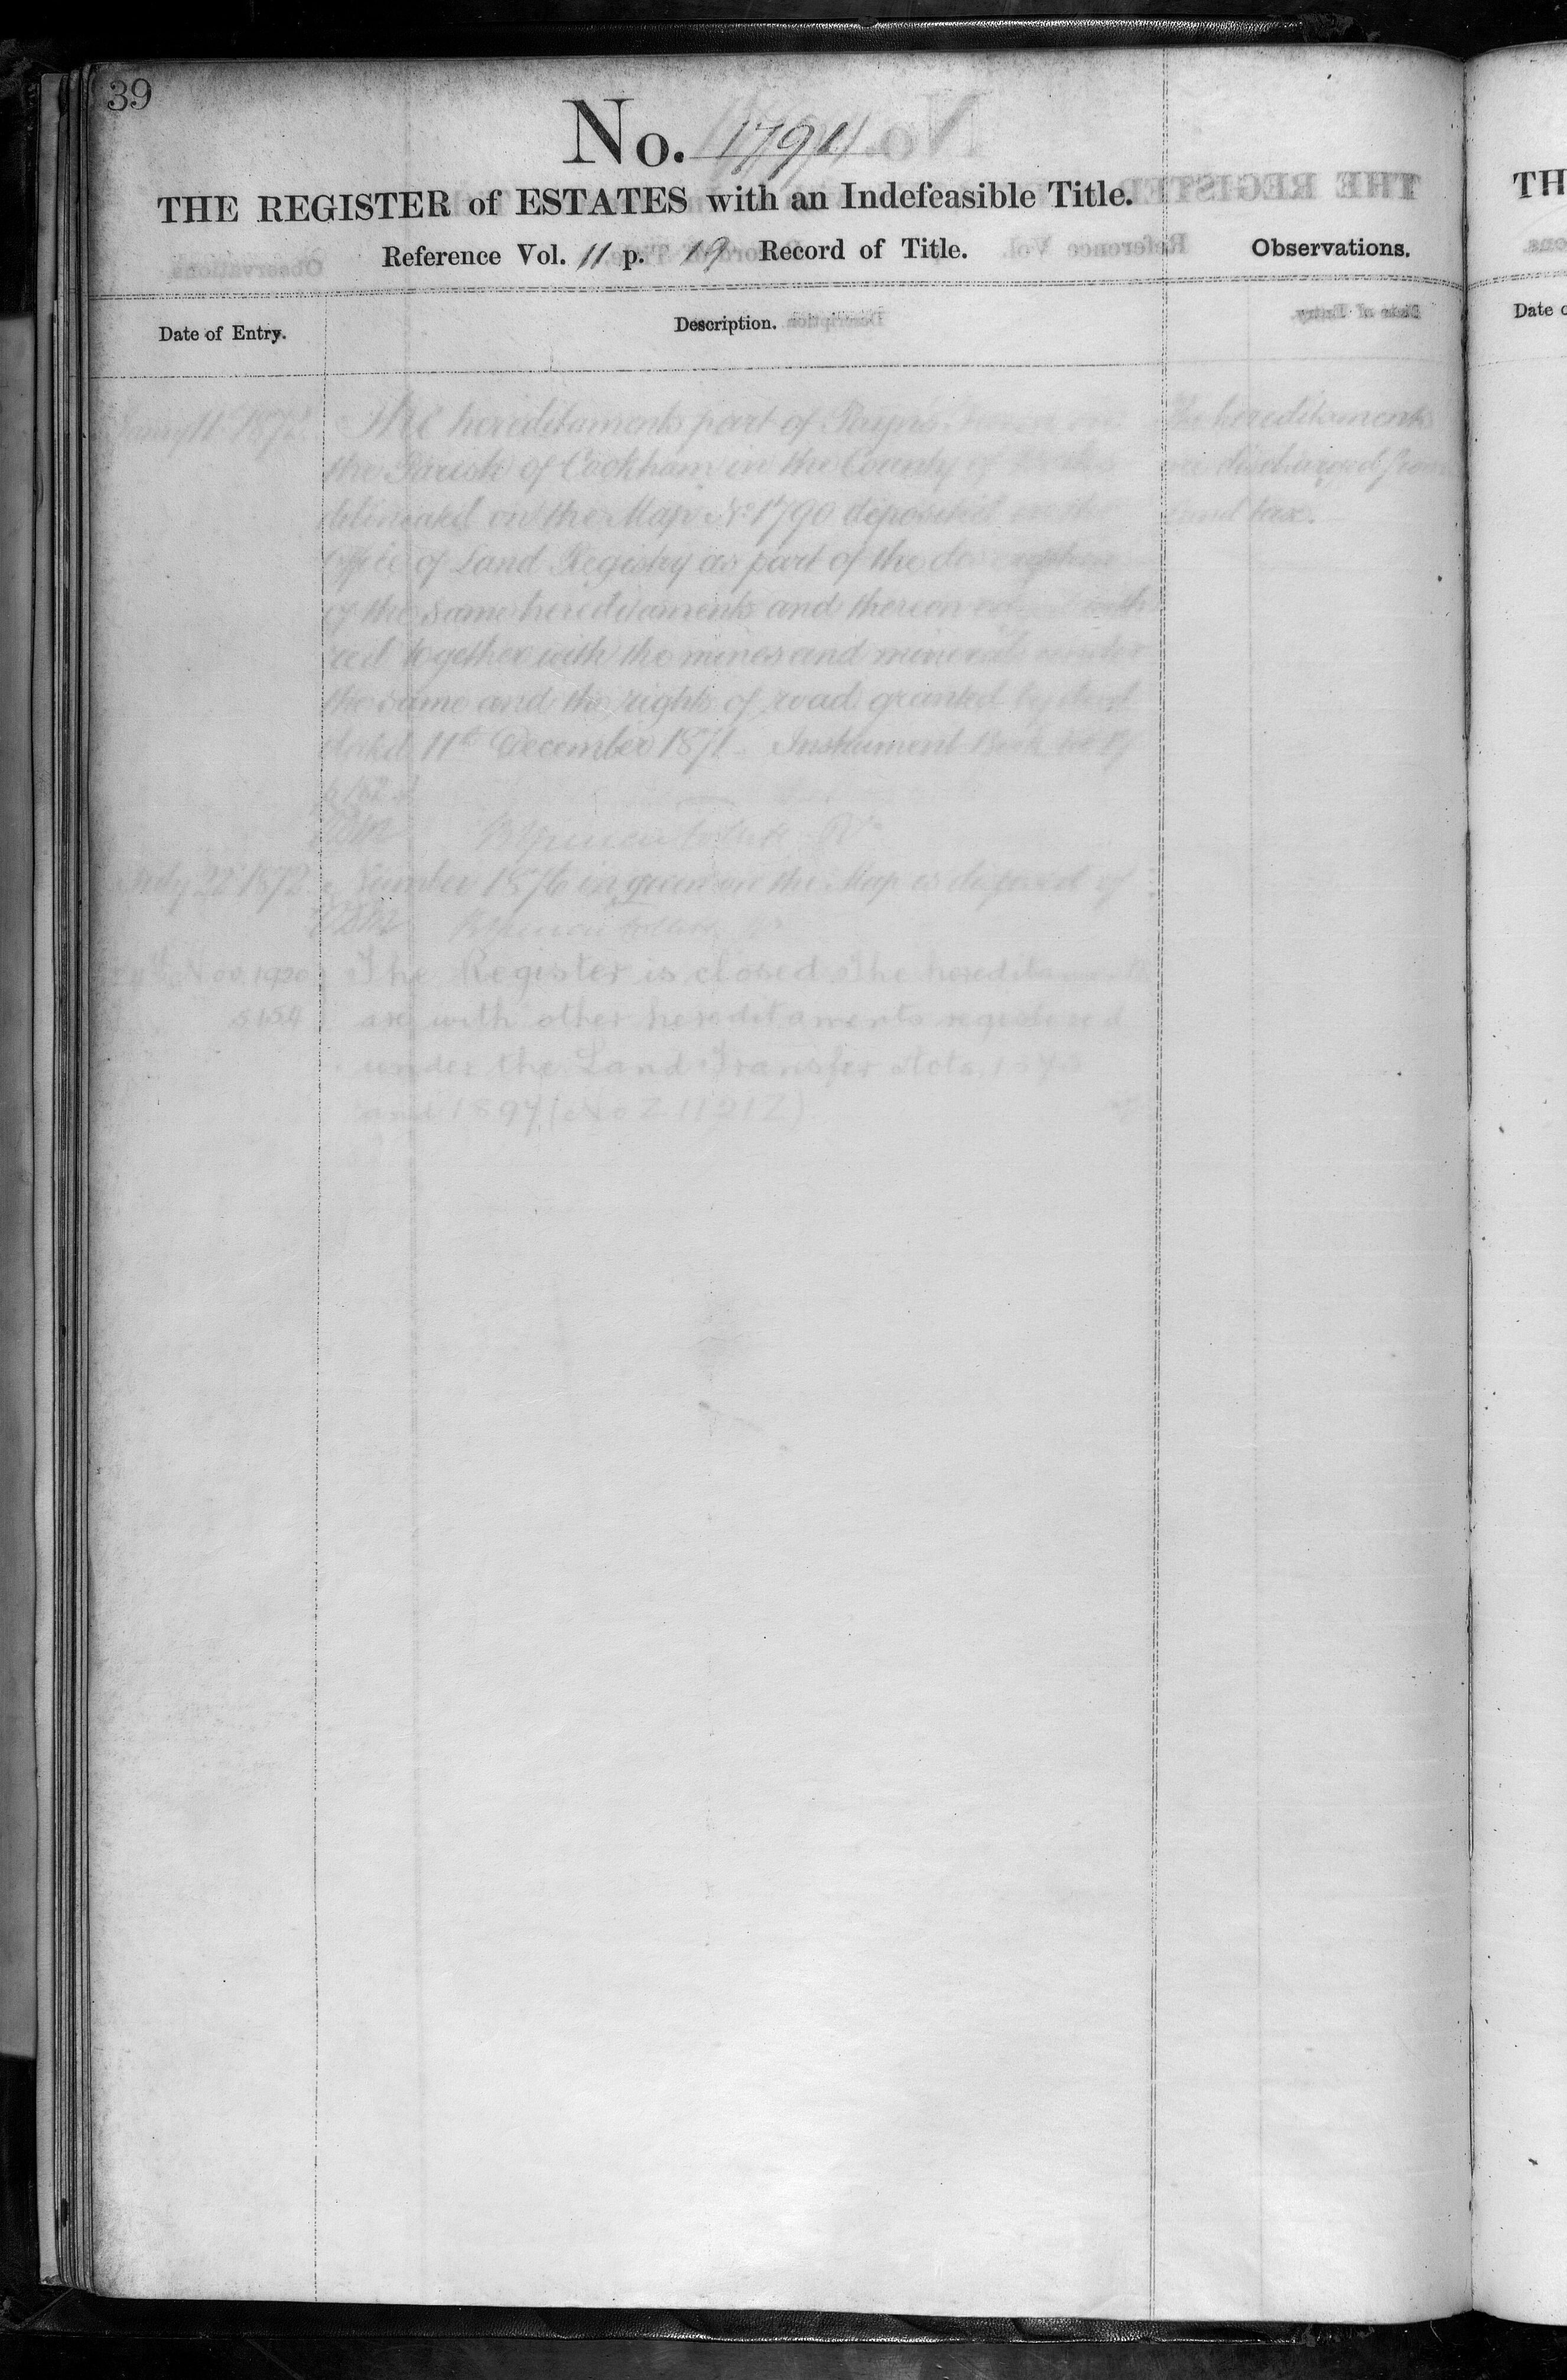 39
No. 1791
THE REGISTER of ESTATES with an Indefeasible Title.
Reference Vol. 11 p. 19 Record of Title.
Observations.
Date of Entry.
Description.
1872
The hereditaments part of
the Parish of Cookham in the County of
delineated on the Map No 1790 deposited in the
Office of Land Registry as part of the description
of the same hereditaments and thereon edged with
red together with the mines and minerals under
the same and the rights of road granted by deed
dated 11th December 1871. Instrument Book
p 182
The hereditaments
are discharged from
land tax.
July 22 1872
Number 1876 in green on the Map is disposed of
Nov. 1920
5154
The Register is closed. The hereditaments
are with other hereditaments registered
under the Land Transfer Acts, 1875
and 1897 (No
TH
Date